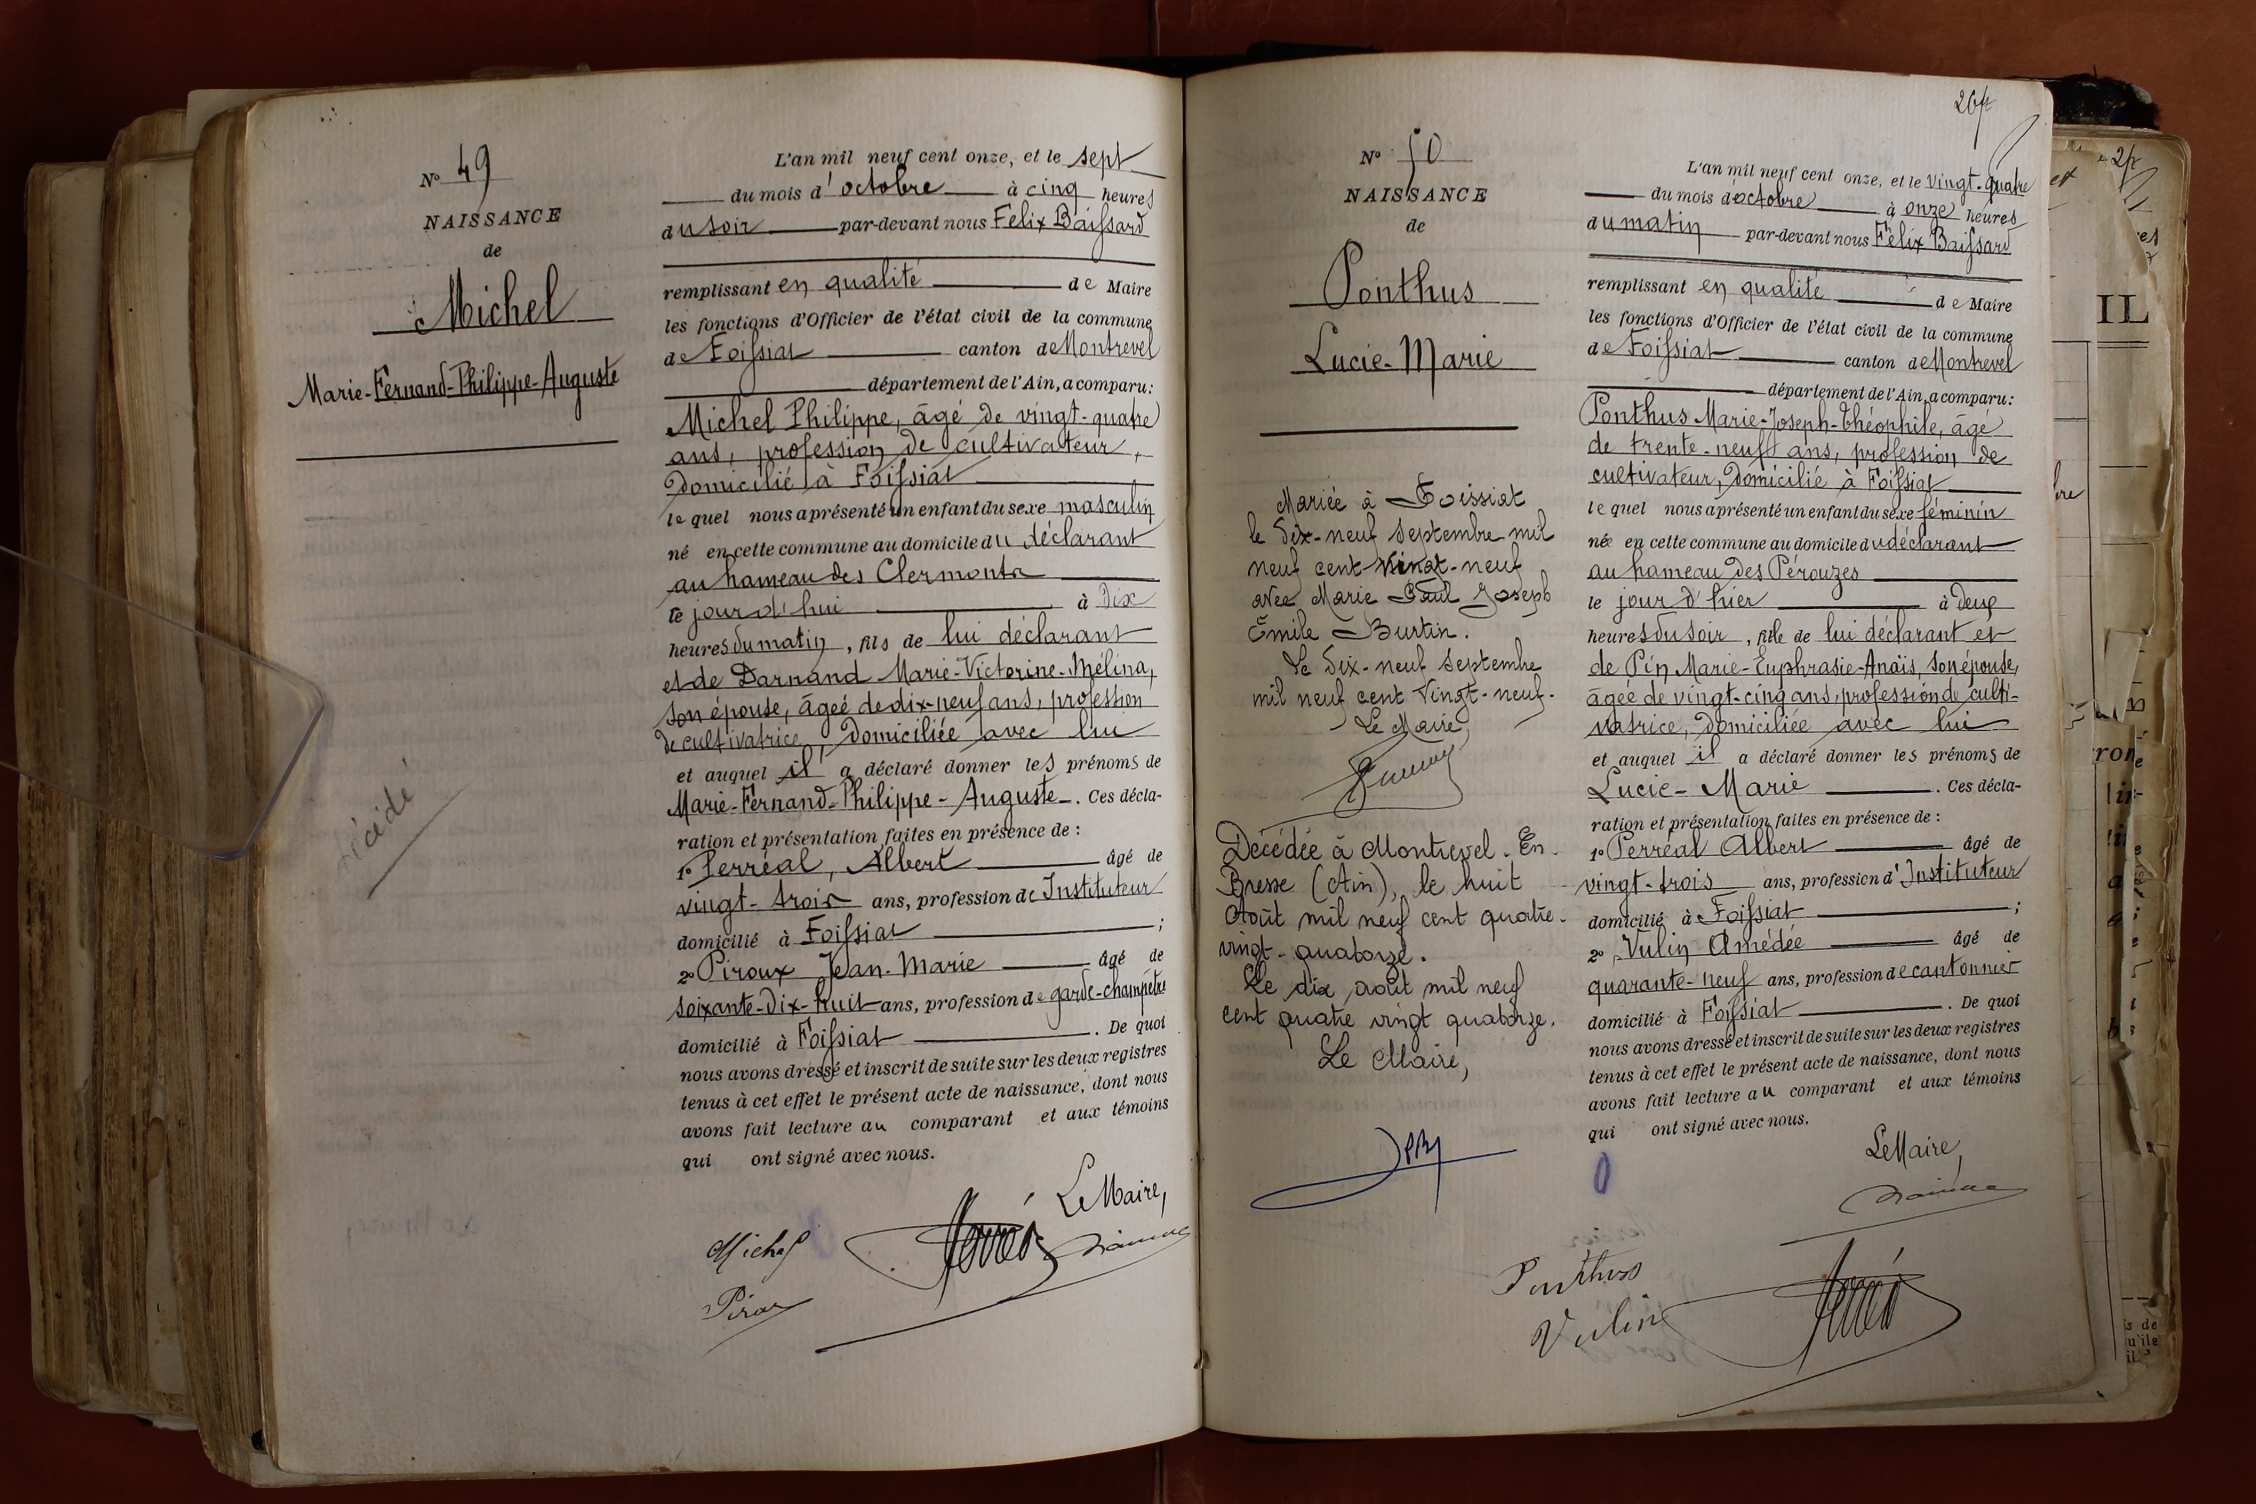 N° 49
NAISSANCE
de
Michel
Marie-Fernand-Philippe-Auguste
décédé
L'an mil neuf cent onze, et le sept
du mois d'octobre à cinq heures
du soir par-devant nous Félix Baissard
remplissant en qualité de Maire
les fonctions d'Officier de l'état civil de la commune
de Foissiat canton de Montrevel
département de l'Ain, a comparu:
Michel Philippe, âgé de vingt-quatre
ans, profession de cultivateur,
domicilié à Foissiat
lequel nous a présenté un enfant du sexe masculin
né en cette commune au domicile du déclarant
au hameau des Clermonts
le jour d'hui à dix
heures du matin, fils de lui déclarant
et de Darnand Marie-Victorine-Mélina,
son épouse, âgeé de dix-neuf ans, profession
de cultivatrice, domiciliée avec lui
et auquel il a déclaré donner les prénoms de
Marie-Fernand-Philippe-Auguste. Ces décla-
ration et présentation faites en présence de :
1° Perréal, Albert âgé de
vingt-trois ans, profession de Instituteur
domicilié à Foissiat ;
2° Piroux Jean-Marie âgé de
soixante-dix-huit ans, profession de garde-champêtre
domicilié à Foissiat . De quoi
nous avons dressé et inscrit de suite sur les deux registres
tenus à cet effet le présent acte de naissance, dont nous
avons fait lecture au comparant et aux témoins
qui ont signé avec nous.
Le Maire,
Michel
26
N° 50
NAISSANCE
de
Ponthus
Lucie-Marie
Mariée à Foissiat
le dix-neuf septembre mil
neuf cent vingt-neuf
avec Marie Paul Joseph
Émile Burtin.
Le dix-neuf septembre
mil neuf cent vingt-neuf.
Le Maire,
Décédée à Montrevel-En-
Bresse (Ain), le huit
Août mil neuf cent quatre-
vingt-quatorze.
Le dix août mil neuf
cent quatre vingt quatorze.
Le Maire,
L'an mil neuf cent onze, et le vingt-quatre
du mois d'octobre à onze heures
du matin par-devant nous Félix Baissard
remplissant en qualité de Maire
les fonctions d'Officier de l'état civil de la commune
de Foissiat canton de Montrevel
département de l'Ain, a comparu:
Ponthus Marie-Joseph-Théophile, âgé
de trente-neuf ans, profession de
cultivateur, domicilié à Foissiat
lequel nous a présenté un enfant du sexe féminin
née en cette commune au domicile du déclarant
au hameau des Pérouzes
le jour d'hier à deux
heures du soir, fille de lui déclarant et
de Pin Marie-Euphrasie-Anaïs, son épouse,
âgeé de vingt-cinq ans, profession de culti-
vatrice, domiciliée avec lui
et auquel il a déclaré donner les prénoms de
Lucie-Marie . Ces décla-
ration et présentation faites en présence de :
1° Perréal Albert âgé de
vingt-trois ans, profession d'Instituteur
domicilié à Foissiat ;
2° Vulin Amédée âgé de
quarante-neuf ans, profession de cantonnier
domicilié à Foissiat . De quoi
nous avons dressé et inscrit de suite sur les deux registres
tenus à cet effet le présent acte de naissance, dont nous
avons fait lecture au comparant et aux témoins
qui ont signé avec nous.
Le Maire,
Ponthus
Vulin
IL